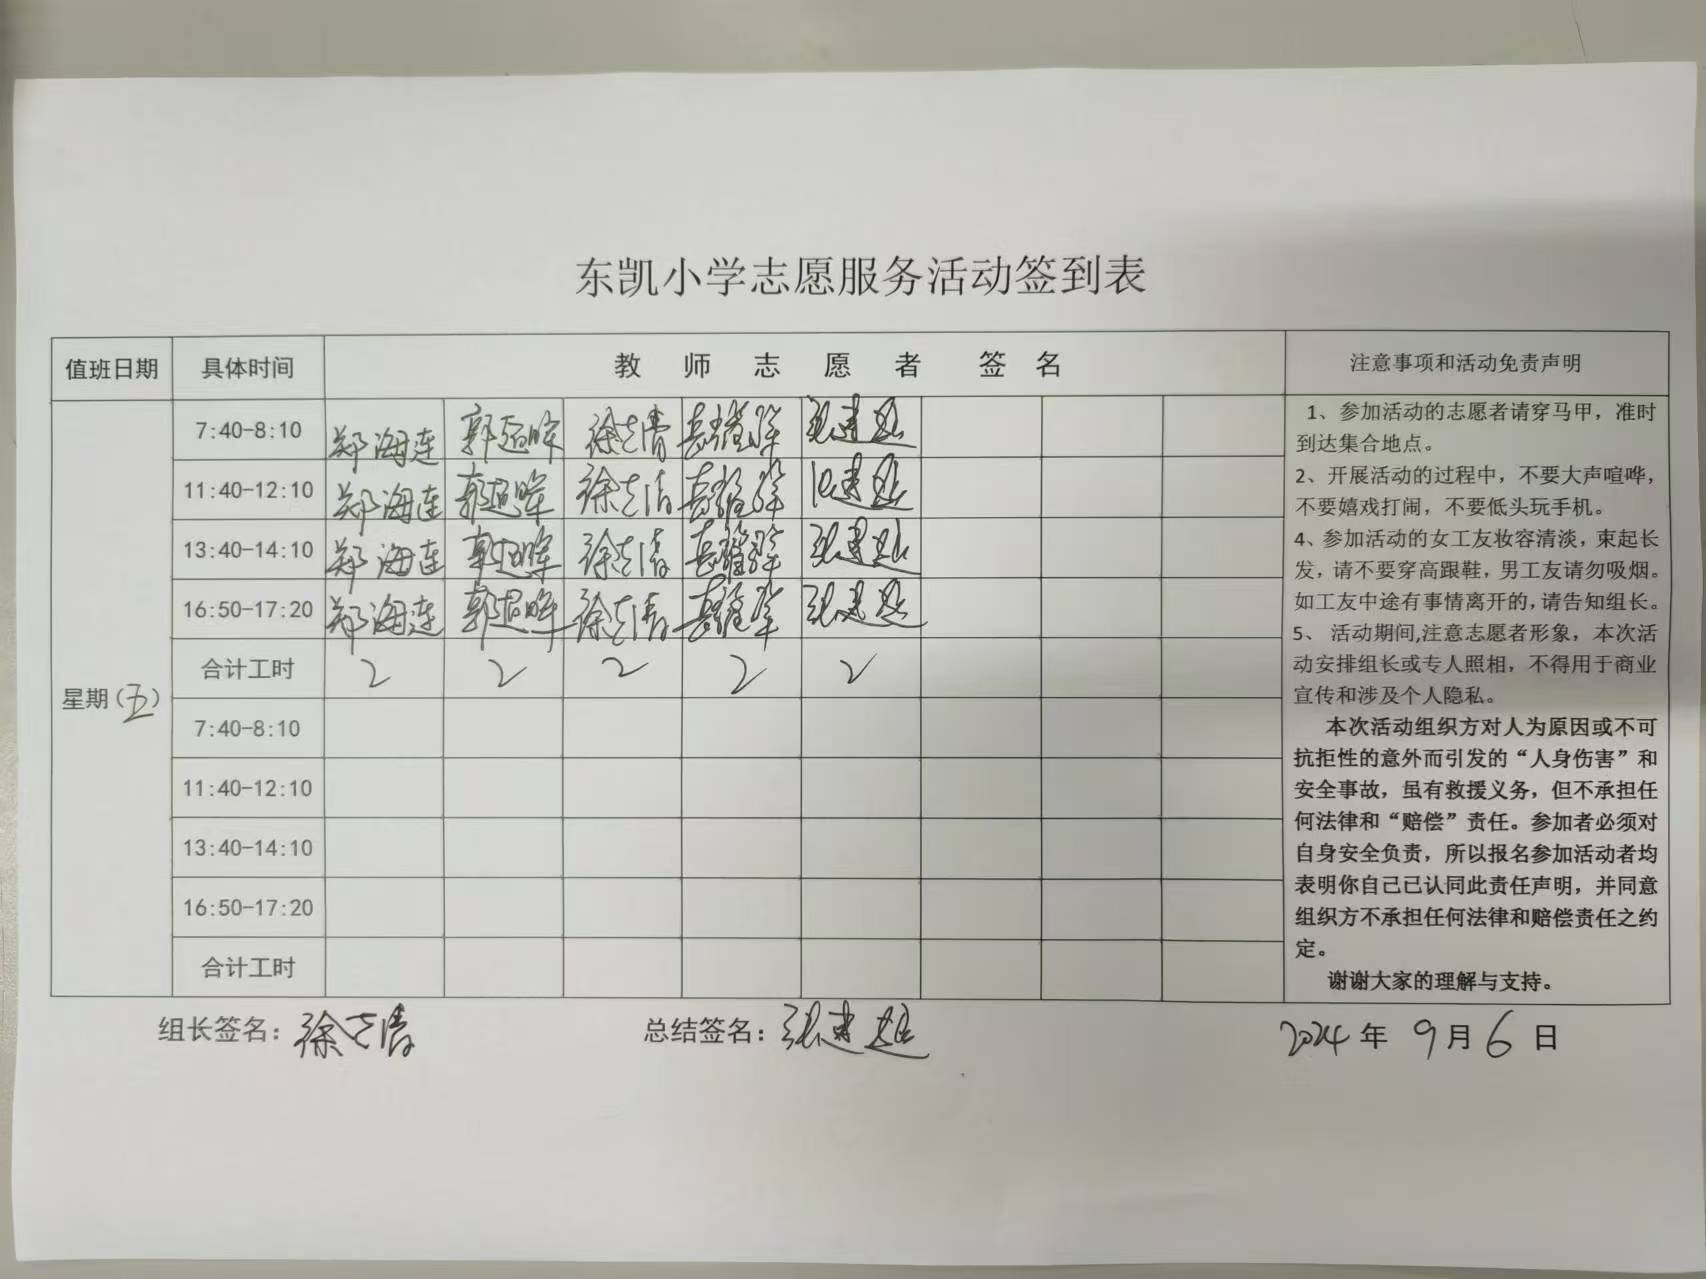 东凯小学志愿服务活动签到表
值班日期 具体时间 教师志愿者 签名 注意事项和活动免责声明
星期(五)
7:40-8:10 郑海连 郭超晖 徐志清 袁耀华 张建超
11:40-12:10 郑海连 郭超晖 徐志清 袁耀华 张建超
13:40-14:10 郑海连 郭超晖 徐志清 袁耀华 张建超
16:50-17:20 郑海连 郭超晖 徐志清 袁耀华 张建超
合计工时 2 2 2 2 2
7:40-8:10
11:40-12:10
13:40-14:10
16:50-17:20
合计工时
1、参加活动的志愿者请穿马甲，准时
到达集合地点。
2、开展活动的过程中，不要大声喧哗，
不要嬉戏打闹，不要低头玩手机。
4、参加活动的女工友妆容清淡，束起长
发，请不要穿高跟鞋，男工友请勿吸烟。
如工友中途有事情离开的，请告知组长。
5、 活动期间,注意志愿者形象，本次活
动安排组长或专人照相，不得用于商业
宣传和涉及个人隐私。
本次活动组织方对人为原因或不可
抗拒性的意外而引发的“人身伤害”和
安全事故，虽有救援义务，但不承担任
何法律和“赔偿”责任。参加者必须对
自身安全负责，所以报名参加活动者均
表明你自己已认同此责任声明，并同意
组织方不承担任何法律和赔偿责任之约
定。
谢谢大家的理解与支持。
组长签名：徐志清 总结签名：张建超 2024年 9月6日